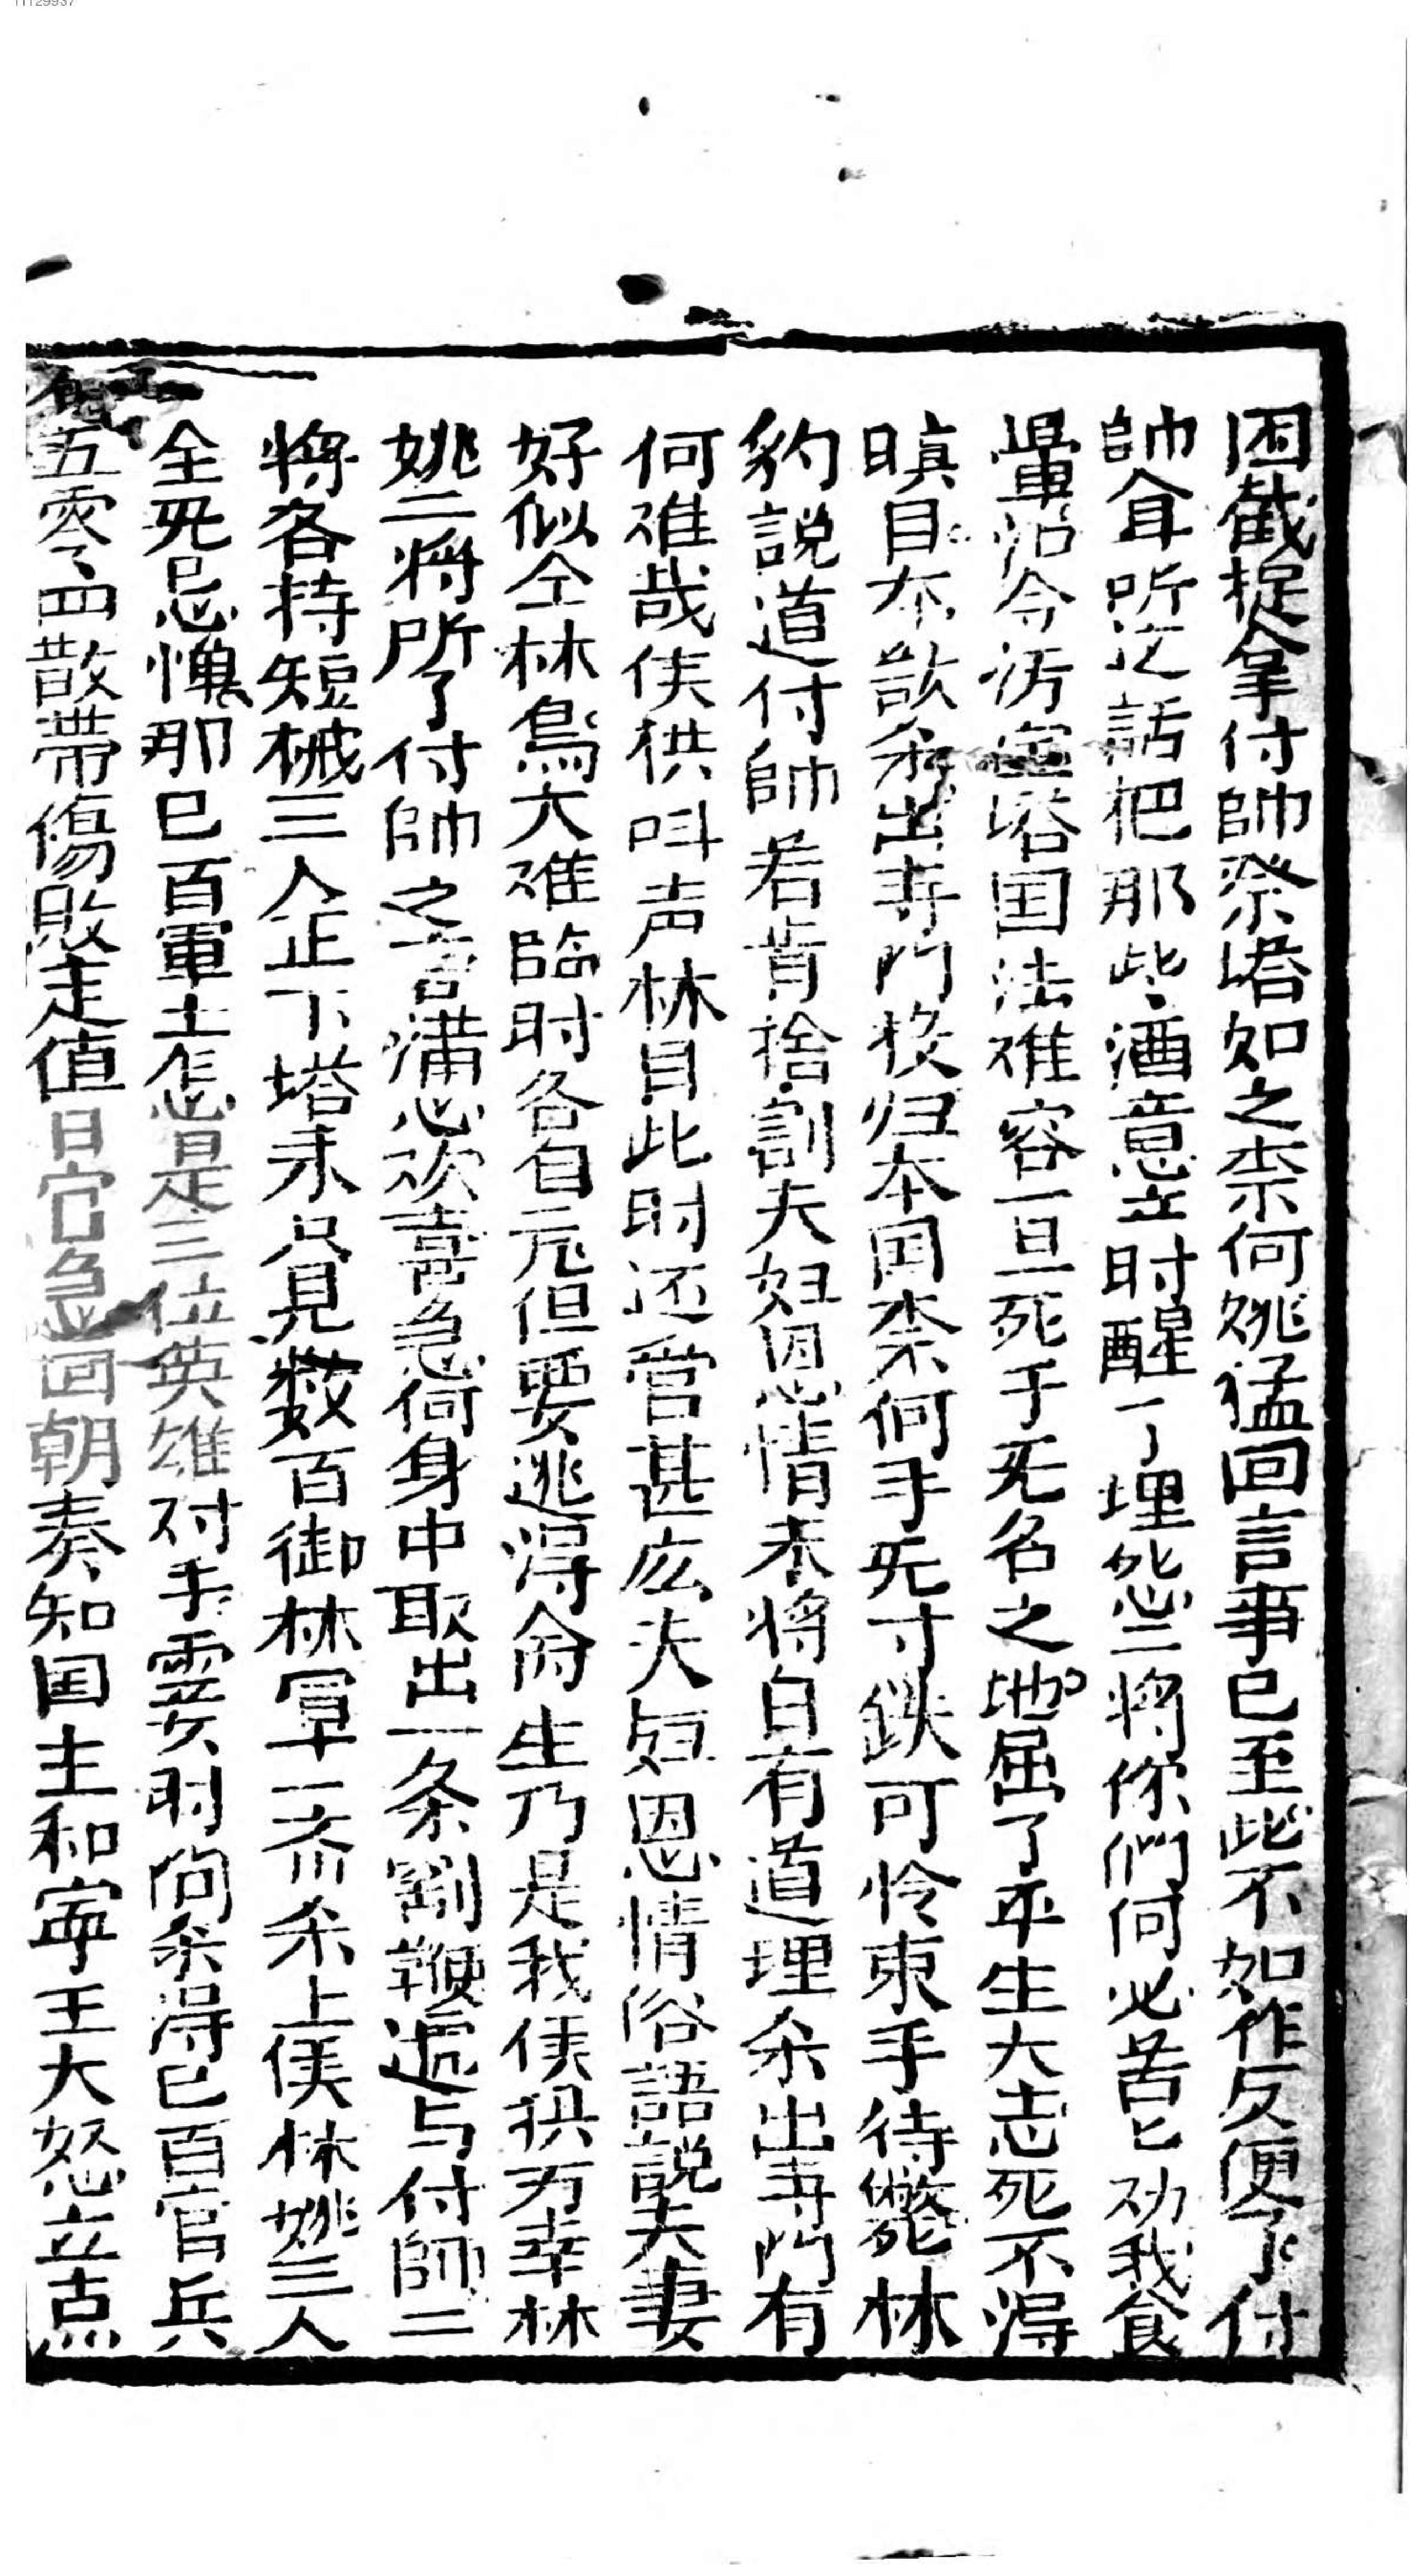 困截捉拿付帥祭塔如之柰何姚猛回言事已至此不如作反便了付
帥耸听这話把那些酒意立时醒了埋怨二将你們何必苦匕劝我食
暈沿今污宝塔国法难容一旦死于旡名之地屈了平生大志死不淂
瞋目本欲杀出寺門投归本国柰何手旡寸鉄可怜束手待斃林
豹説道付帥若肯捨割夫妇恩情未将自有道理杀出寺門有
何难哉侯拱呌声林目此时还言甚庅夫妇恩情俗語説夫妻
好似仝林鳥大难臨时各自飛但要逃淂命生乃是我侯拱万幸林
姚二将所了付帥之言满心欢喜急向身中取出一条劉鞭遞与付師二
将各持短械三人正下塔来只見数百御林軍一斉杀上侯林姚三人
全旡忌憚那已百軍士怎是三位英雄对手霎时间杀得已百官兵
五零四散帶傷敗走值日官急回朝奏知国主和寜王大怒立点